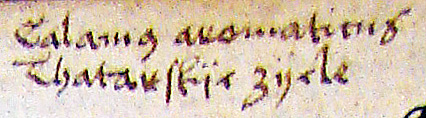 Calamus aromaticus
Thatarskije zijele